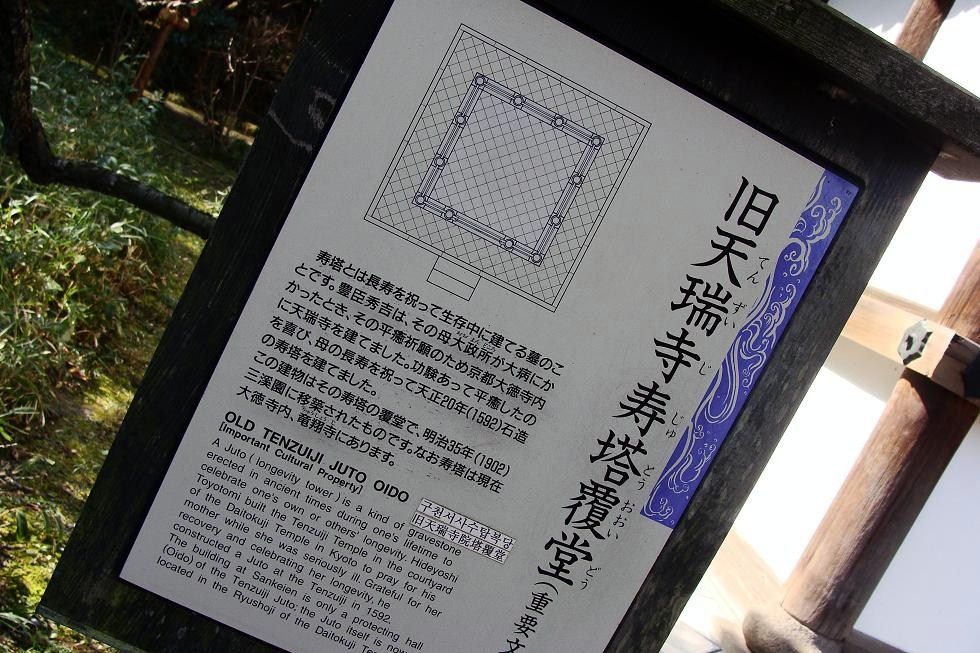 旧天瑞寺寿塔覆堂(重要文
てんずいじじゅとうおおいどう
寿塔とは長寿を祝って生存中に建てる墓のこ
とです。豊臣秀吉は、その母大政所が大病にか
かったとき、その平癒祈願のため京都大徳寺内
に天瑞寺を建てました。功験あって平癒したの
を喜び、母の長寿を祝って天正20年(1592)石造
の寿塔を建てました。
この建物はその寿塔の覆堂で、明治35年(1902)
三溪園に移築されたものです。なお寿塔は現在
大徳寺内、竜翔寺にあります。
OLD TENZUIJI JUTO OIDO
[Important Cultural Property]
A Juto ( longevity tower ) is a kind of gravestone
erected in ancient times during one's lifetime to
celebrate one's own or others' longevity. Hideyoshi
Toyotomi built the Tenzuiji Temple in the courtyard
of the Daitokuji Temple in Kyoto to pray for his
mother while she was seriously ill. Grateful for her
recovery and celebrating her longevity, he
constructed a Juto at the Tenzuiji in 1592.
The building at Sankeien is only a protecting hall
(Oido) of the Tenzuiji Juto; the Juto itself is now
located in the Ryushoji of the Daitokuji
구천서사수탑복당
旧天瑞寺院塔覆堂